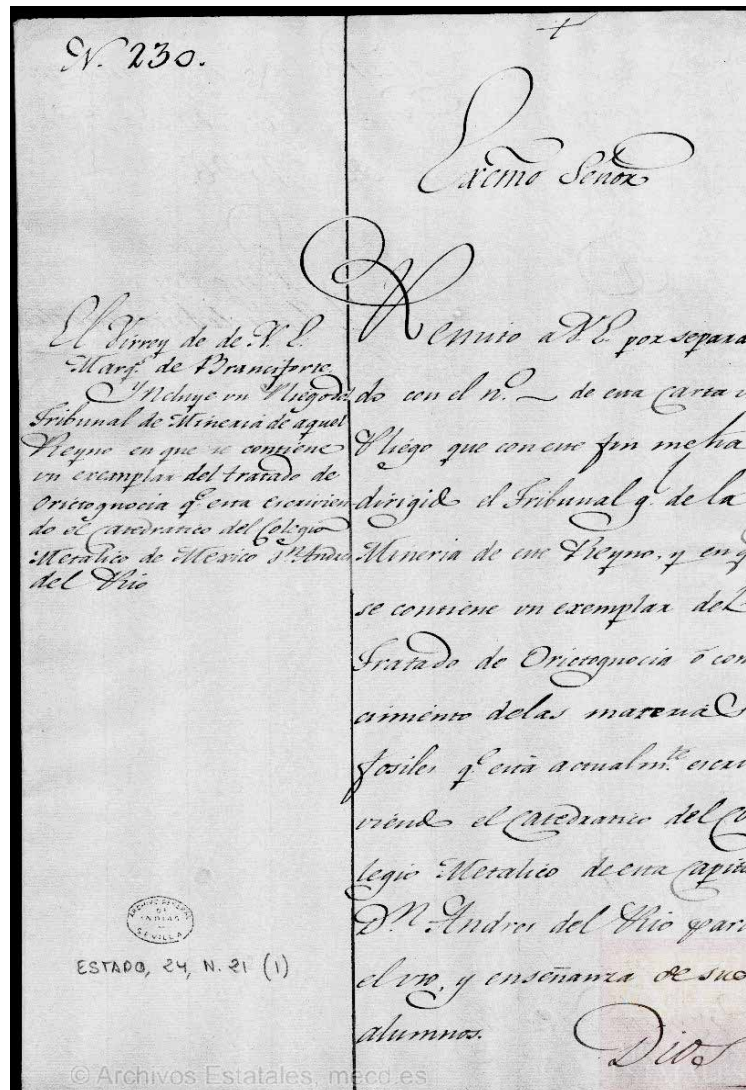 N. 230.
+
Exc̃mo Señor
El Virrey de de N. E.
Marq.s de Branciforte
Yncluye un Pliego del
Tribunal de Mineria de aquel
Reyno en que se contiene
un exemplar del tratado de
Orictognocia q.e esta escrivien
do el Catedratico del Colegio
Metalico de Mexico Dn. Andres
del Rio
Remito a V.E. por separa
do con el n.o ~ de esta Carta
Pliego que con este fin me ha
dirigido el Tribunal g.l de la
Mineria de este Reyno, y en q
se contiene un exemplar del
Tratado de Orictognocia ó con
cimiento delas materias
fosiles q.e està actualm.te escri
viendo el Catedratico del Co
legio Metalico de esta Capita
D.n Andres del Rio para
el uso, y enseñanza de sus
alumnos.
Dios
ARCHIVO GENERAL
DE
INDIAS
SEVILLA
ESTADO, 24, N. 21 (1)
© Archivos Estatales, mecd.es